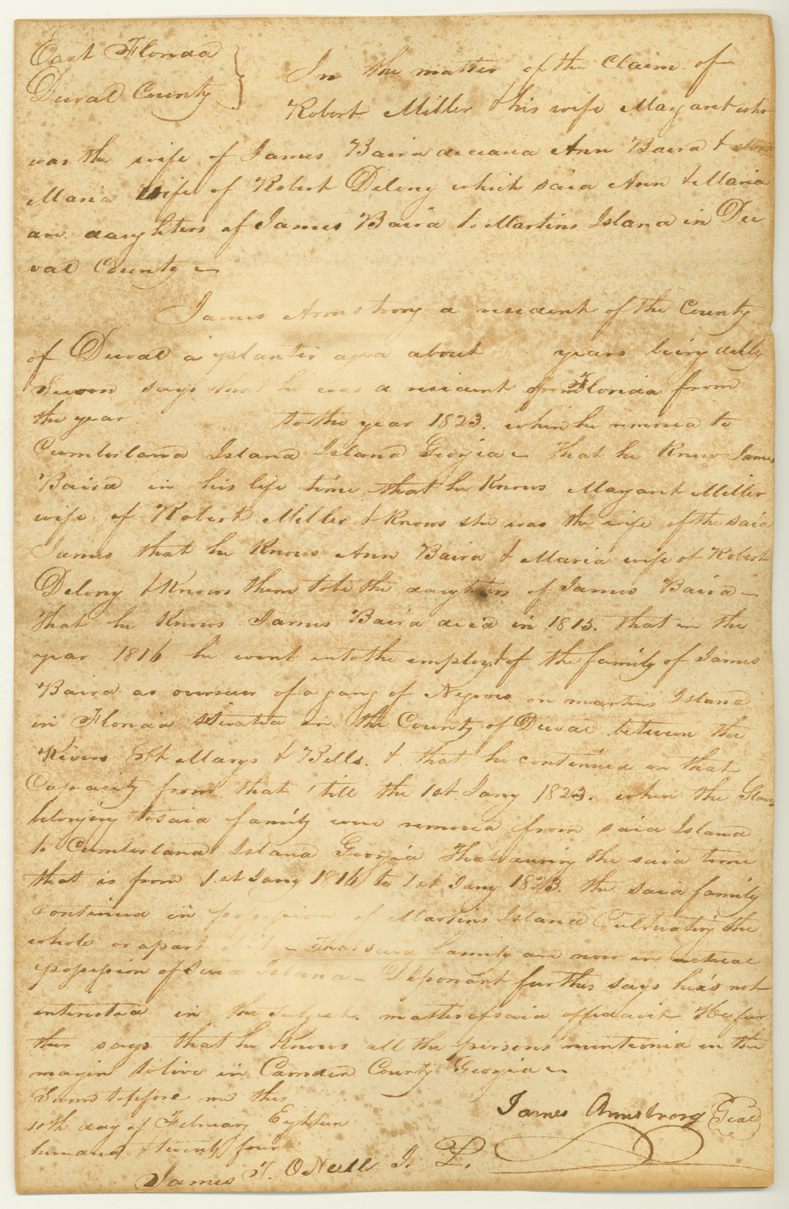 East Florida
Duval County
In the matter of the Claim of
Robert Miller & his wife Margaret who
was the wife of James Baird deceased Ann Baird &
Maria wife of Robert Delony which said Ann & Maria
are daughters of James Baird to Martins Island in Du
val County
James Armstrong a resident of the County
of Duval a planter aged about years being duly
Sworn says that he was a resident of Florida from
the year to the year 1823. when he removed to
Cumberland Island Island Georgia - That he knew James
Baird in his life time that he knows Margaret Miller
wife of Robert Miller & knows she was the wife of the said
James that he knows Ann Baird & Maria wife of Robert
Delony & knows them to be the daughters of James Baird -
That he knows James Baird died in 1815. that in the
year 1816 he went into the employ of the family of James
Baird as overseer of a gang of Negroes on martins Island
in Florida Situated in the County of Duval between the
Rivers St Marys & Bells. & that he continued in that
Capacity from that 'till the 1st Jany 1823. when the Slaves
belonging to said family were removed from said Island
to Cumberland Island Georgia That during the said time
that is from 1st Jany 1816 to 1st Jany 1823. the said family
Continued in possession of Martins Island Cultivating the
whole or a part of it - That said family are now in actual
possession of said Island - Deponant further says he is not
interested in the subject matter of said affidavit He fur
ther says that he knows all the persons mentioned in the
margin to live in Camden County Georgia -
Sworn to before me this
10th day of February Eighteen
hundred & twenty four
James Armstrong Seal
James T. O Neill J. P.